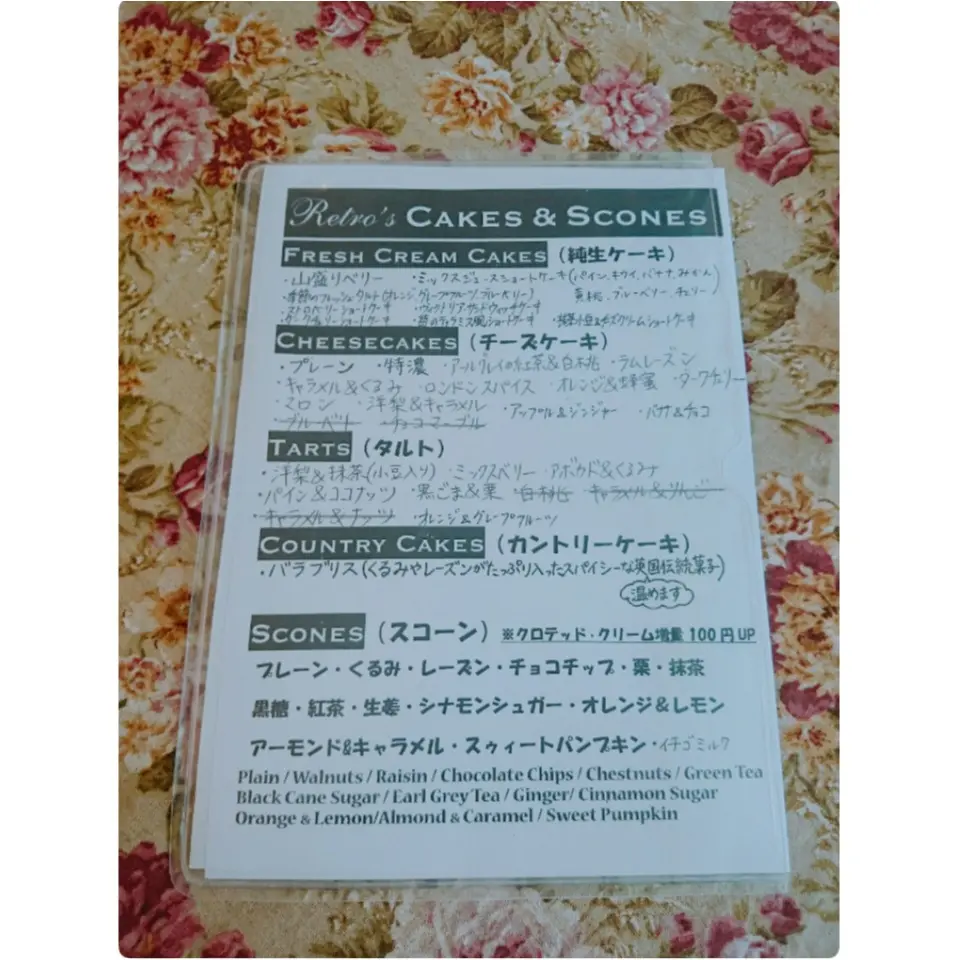 Retro's CAKES & SCONES
FRESH CREAM CAKES (純生ケーキ)
・山盛りベリー ・ミックスジュースショートケーキ(パイン、キウイ、バナナ、みかん
・季節のフレッシュタルト(オレンジ、グレープフルーツ、ブルーベリー) 黄桃、ブルーベリー、チェリー)
・ストロベリーショートケーキ ・ヴィクトリアサンドウィッチケーキ
・ダークチェリーショートケーキ ・苺のティラミス風ショートケーキ
CHEESECAKES (チーズケーキ)
・プレーン ・特濃 ・アールグレイの紅茶&白桃 ・ラムレーズン
・キャラメル&くるみ ・ロンドンスパイス ・オレンジ&蜂蜜 ・ダークチェリー
・マロン ・洋梨&キャラメル ・アップル&ジンジャー ・バナナ&チョコ
・チョコマーブル
TARTS (タルト)
・洋梨&抹茶(小豆入り) ・ミックスベリー ・アボカド&くるみ
・パイン&ココナッツ ・黒ごま&栗 ・白桃 ・キャラメル&りんご
・キャラメル&ナッツ ・オレンジ&グレープフルーツ
COUNTRY CAKES (カントリーケーキ)
・バラブリス(くるみやレーズンがたっぷり入ったスパイシーな英国伝統菓子)
温めます
SCONES (スコーン) ※クロテッド・クリーム増量 100円UP
プレーン・くるみ・レーズン・チョコチップ・栗・抹茶
黒糖・紅茶・生姜・シナモンシュガー・オレンジ&レモン
アーモンド&キャラメル・スウィートパンプキン・イチゴミルク
Plain / Walnuts / Raisin / Chocolate Chips / Chestnuts / Green Tea
Black Cane Sugar / Earl Grey Tea / Ginger/ Cinnamon Sugar
Orange & Lemon/Almond & Caramel / Sweet Pumpkin